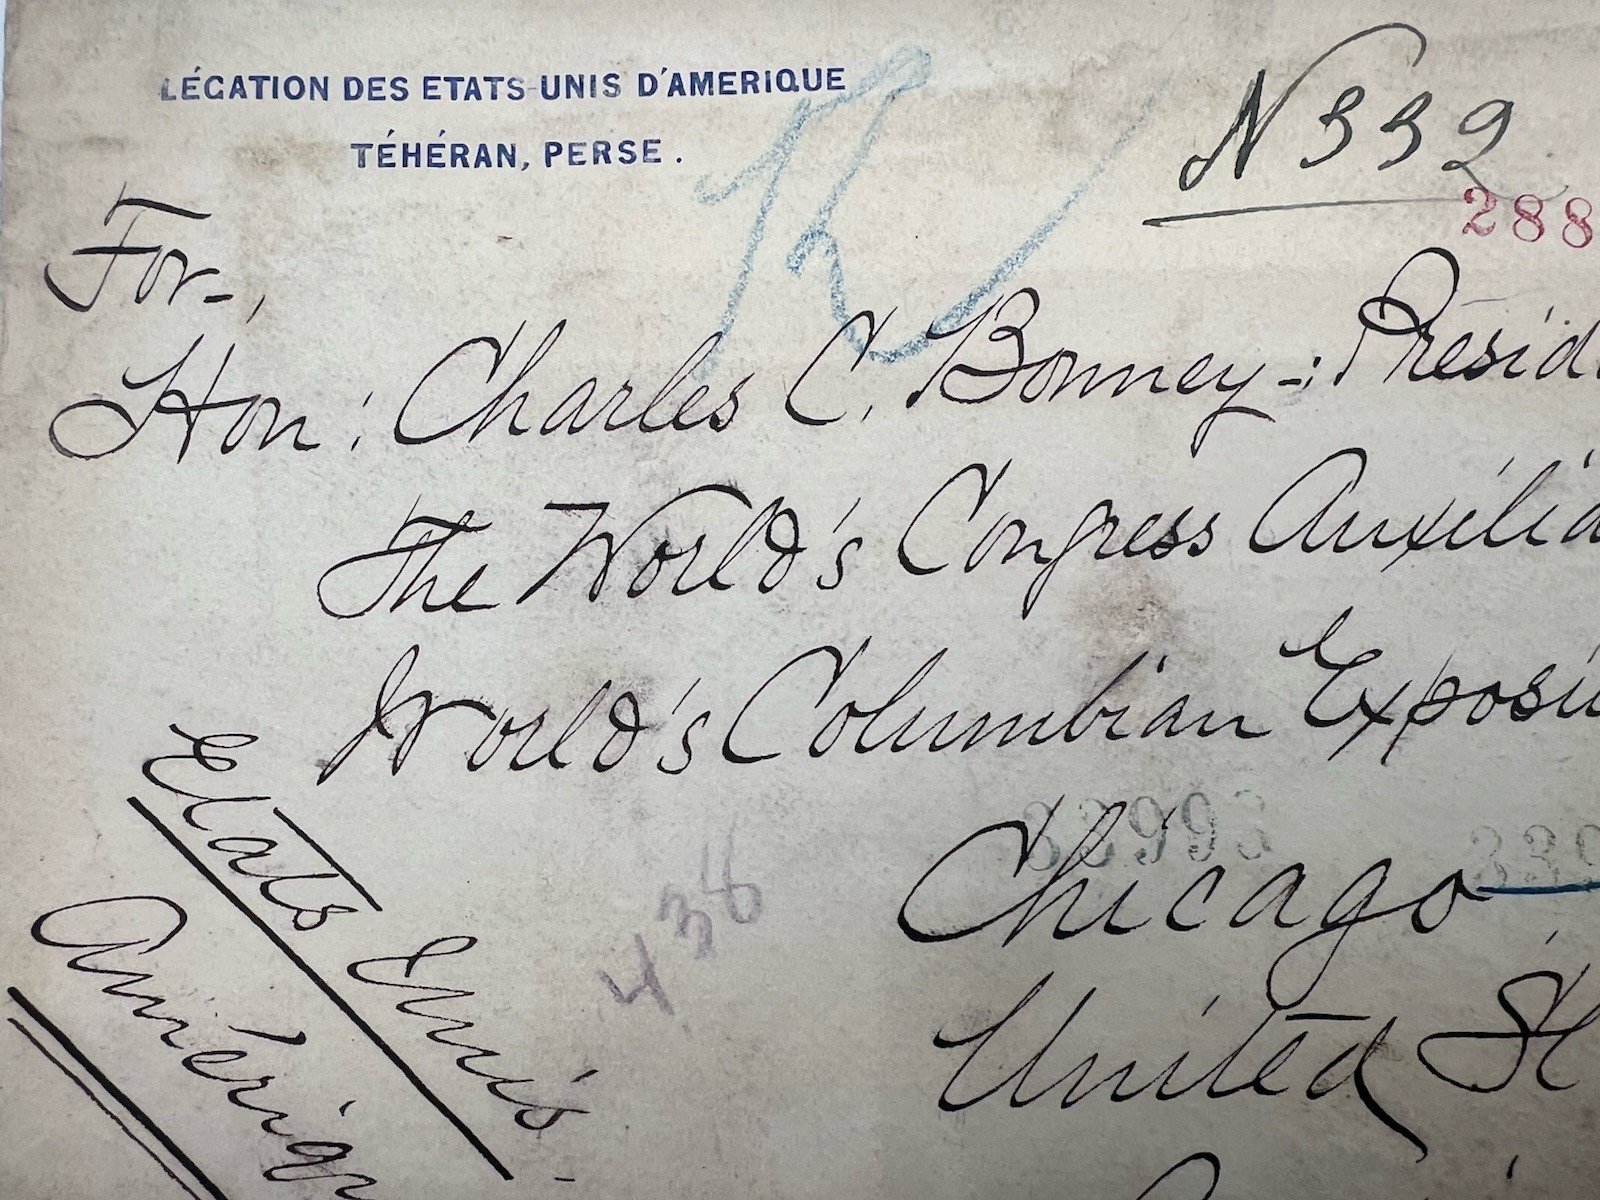 LÉGATION DES ETATS-UNIS D'AMERIQUE
TÉHÉRAN, PERSE.
N 332
288
For-,
Hon: Charles C. Bonney-: Presid
The World's Congress Auxilia
World's Columbian Exposi
Chicago
United St
Etats Unis
Amériq
436